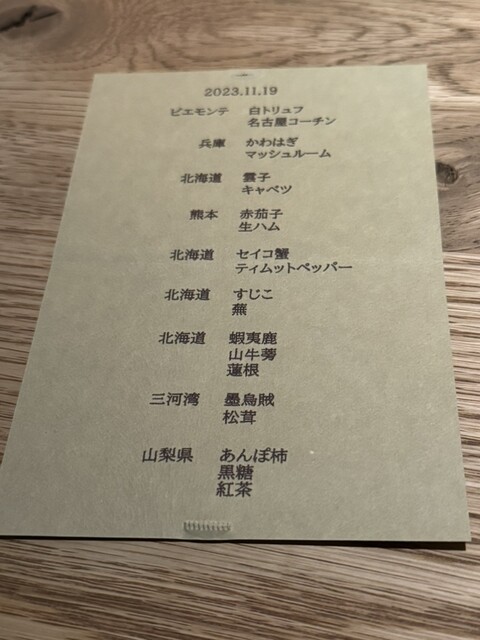 2023.11.19
ピエモンテ 白トリュフ
名古屋コーチン
兵庫 かわはぎ
マッシュルーム
北海道 雲子
キャベツ
熊本 赤茄子
生ハム
北海道 セイコ蟹
ティムットペッパー
北海道 すじこ
蕪
北海道 蝦夷鹿
山牛蒡
蓮根
三河湾 墨烏賊
松茸
山梨県 あんぽ柿
黒糖
紅茶